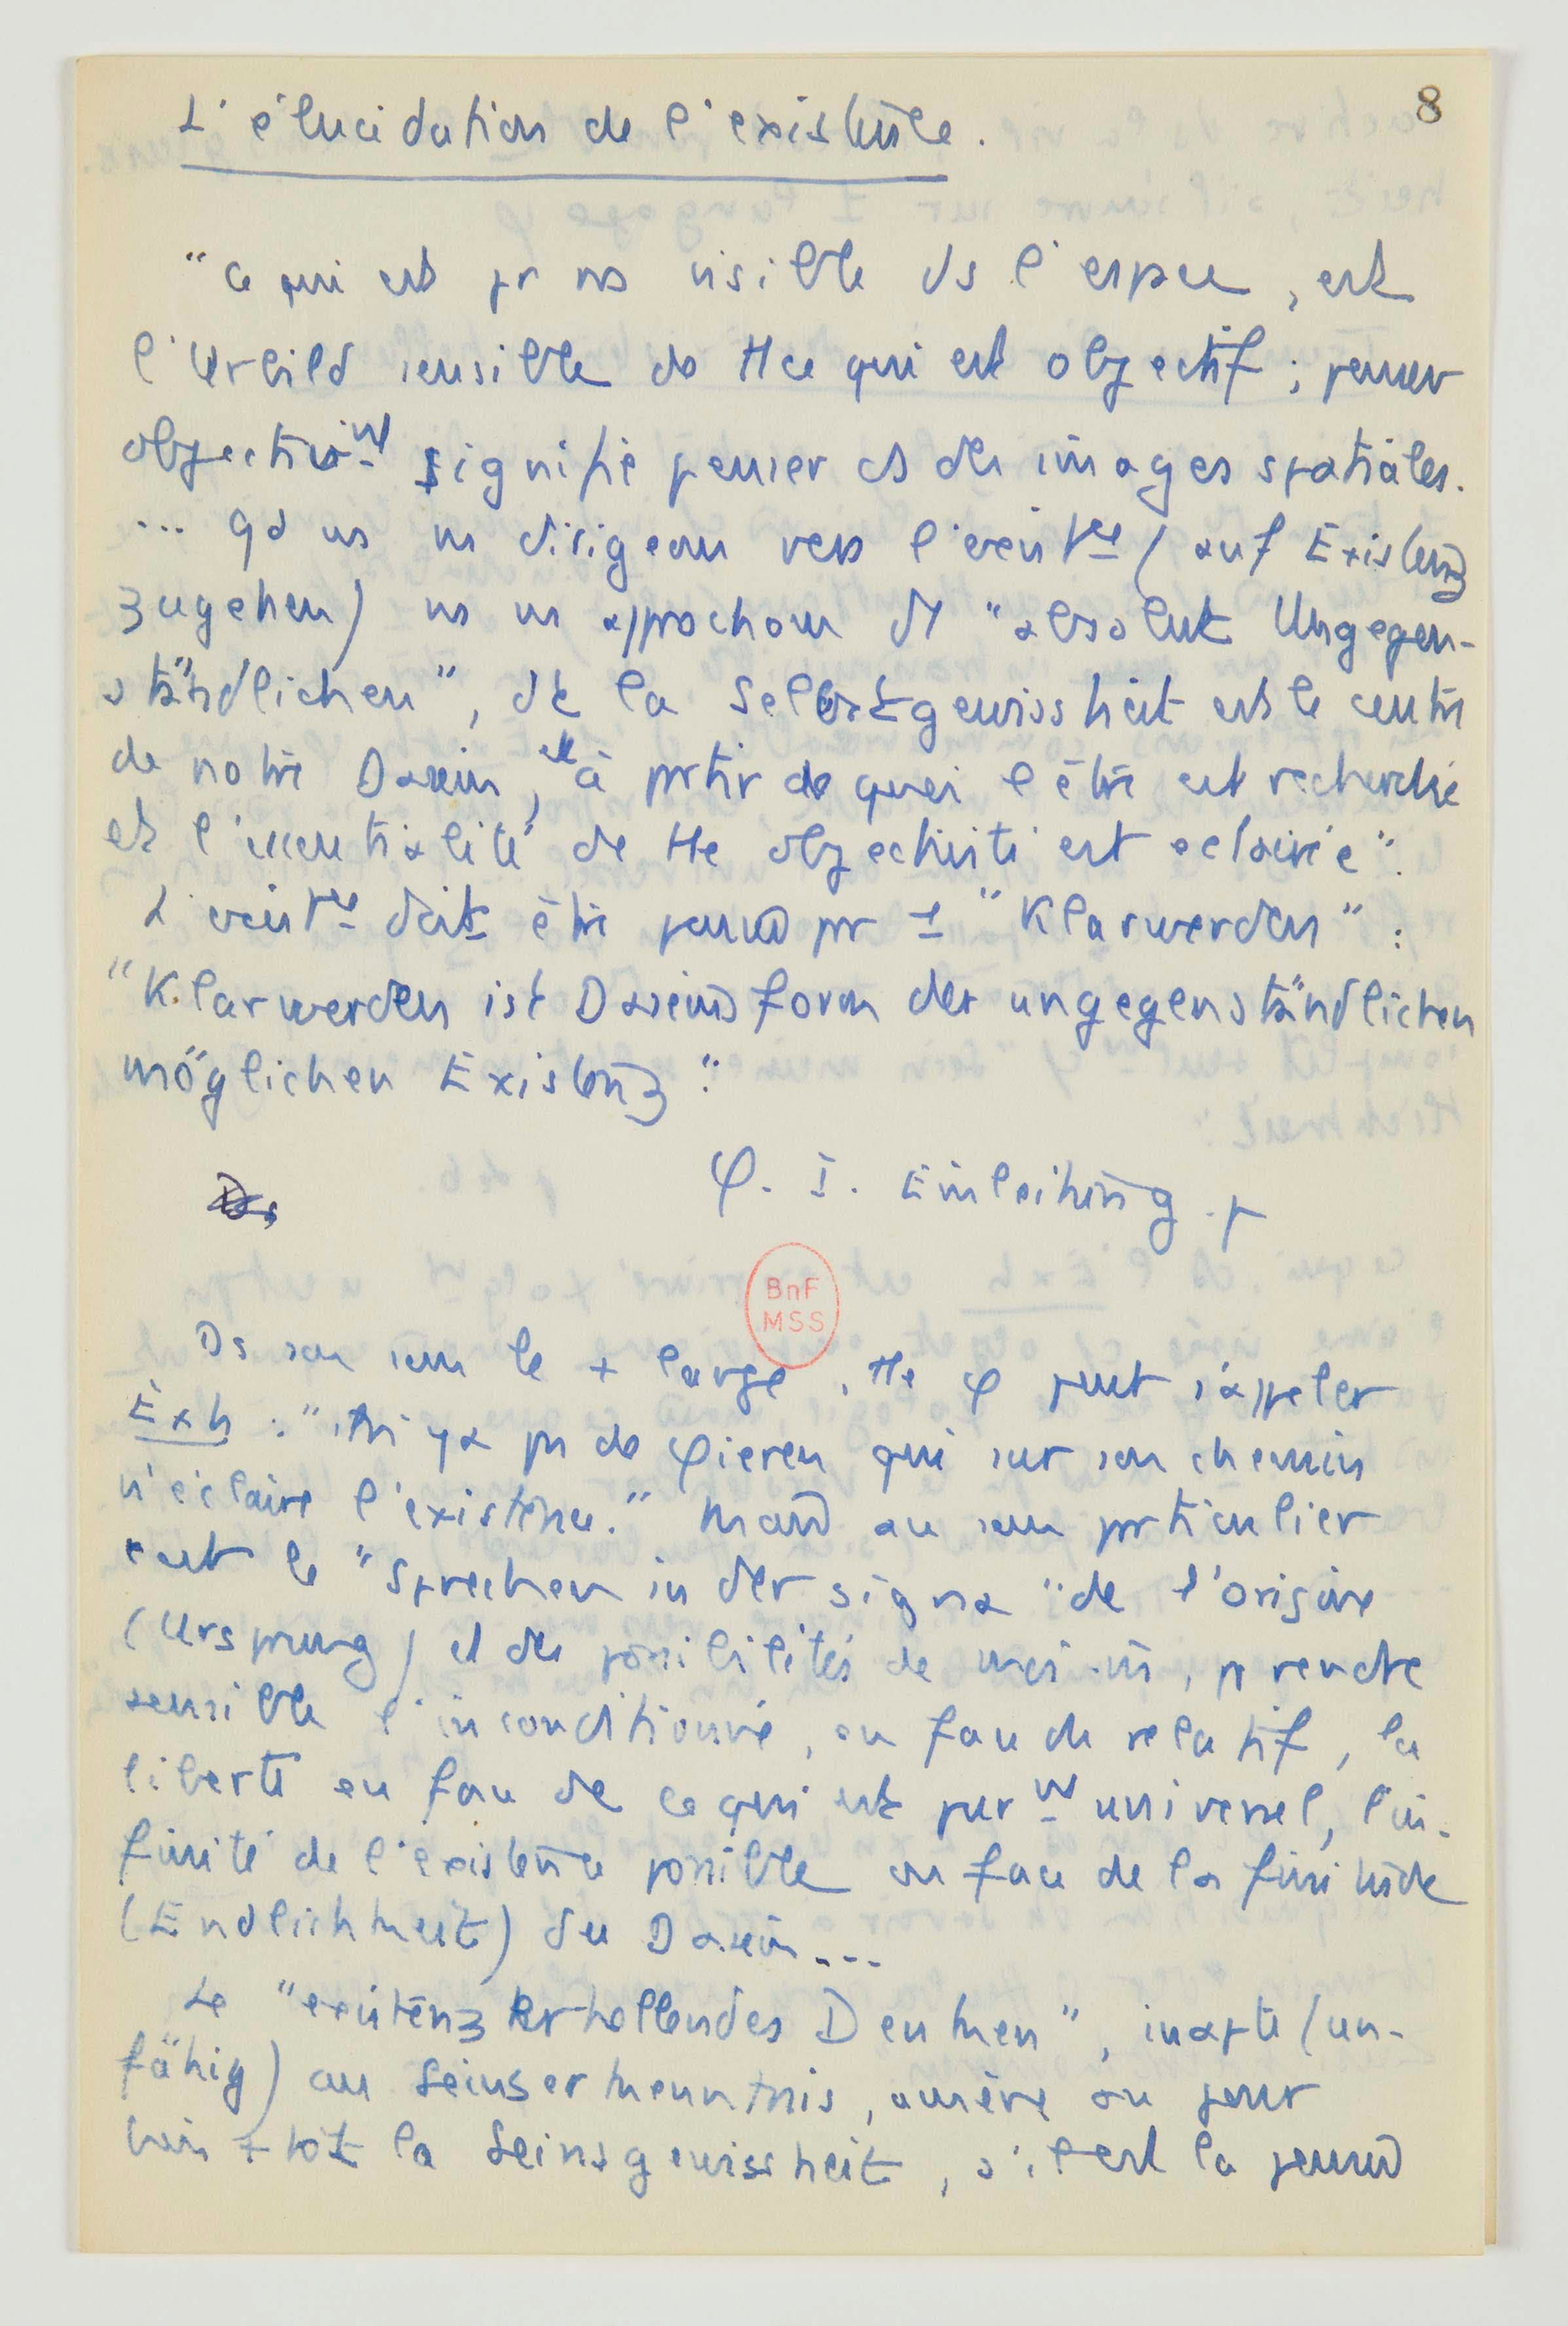 8
L'élucidation de l'existence.
"Ce qui est pr ns visible ds l'espace, est
l'Urbild sensible de tt ce qui est objectif ; penser
objectivt signifie penser ds des images spatiales.
... Qd ns ns dirigeons vers l'existce (auf Existenz
zugehen) ns ns approchons d'1 "absolut Ungegen-
ständlichen", dt la Selbstgewissheit est le centre
de notre Dasein, et à prtir de quoi l'être est recherché
et l'essentialité de tte objectivité est éclairée".
L'existce doit être pensée pr 1 "Klarwerden" :
"Klarwerden ist Daseinsform der ungegenständlichen
möglichen Existenz".
φ. I. Einleitung. p
BnF
MSS
Ds son sens le + large, tte φ peut s'appeler
Exh : " n'y a ps de φieren qui sur son chemin
n'éclaire l'existence." Mais au sens prticulier
c'est le "Sprechen in der signa" de l'origine
(Ursprung) et des possibilités de moi-m, pr rendre
sensible l'inconditionné, en face du relatif, la
liberté en face de ce qui est purt universel, l'in-
finité de l'existence possible en face de la finitude
(Endlichkeit) du Dasein...
Le "existenz erhellendes Denken", inapte (un-
fähig) au Seinserkenntnis, amène au jour
bien + tôt la Seinsgewissheit, s'il est la pensée